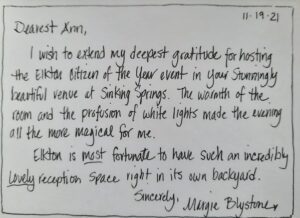 11-19-21
Dearest Ann,
I wish to extend my deepest gratitude for hosting
the Elkton Citizen of the Year event in your stunningly
beautiful venue at Sinking Springs. The warmth of the
room and the profusion of white lights made the evening
all the more magical for me.
Elkton is most fortunate to have such an incredibly
lovely reception space right in its own backyard.
Sincerely,
Margie Blystone